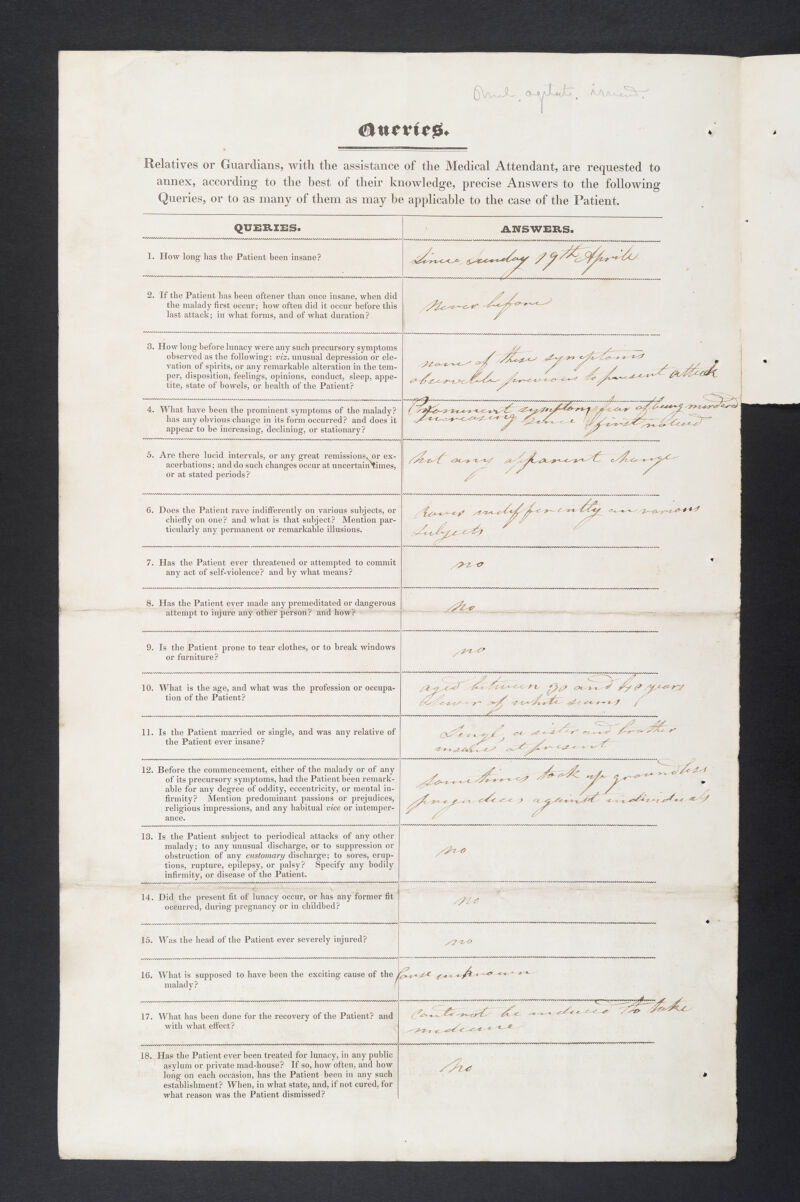 Queries.
Relatives or Guardians, with the assistance of the Medical Attendant, are requested to
annex, according to the best of their knowledge, precise Answers to the following
Queries, or to as many of them as may be applicable to the case of the Patient.
QUERIES.
ANSWERS.
1. How long has the Patient been insane?
Since Sunday 19th Aprile
2. If the Patient has been oftener than once insane, when did
the malady first occur; how often did it occur before this
last attack; in what forms, and of what duration?
Never before
3. How long before lunacy were any such precursory symptoms
observed as the following: viz. unusual depression or ele-
vation of spirits, or any remarkable alteration in the tem-
per, disposition, feelings, opinions, conduct, sleep, appe-
tite, state of bowels, or health of the Patient?
none of these symptoms
previous to present attack
4. What have been the prominent symptoms of the malady?
has any obvious change in its form occurred? and does it
appear to be increasing, declining, or stationary?
Prominent symptoms fear of being murdered
Increasing since first noticed
5. Are there lucid intervals, or any great remissions, or ex-
acerbations; and do such changes occur at uncertain times,
or at stated periods?
Not any apparent change
6. Does the Patient rave indifferently on various subjects, or
chiefly on one? and what is that subject? Mention par-
ticularly any permanent or remarkable illusions.
Raves indifferently on various
subjects
7. Has the Patient ever threatened or attempted to commit
any act of self-violence? and by what means?
no
8. Has the Patient ever made any premeditated or dangerous
attempt to injure any other person? and how?
No
9. Is the Patient prone to tear clothes, or to break windows
or furniture?
no
10. What is the age, and what was the profession or occupa-
tion of the Patient?
aged between 30 and 40 years
Sewer of white seams
11. Is the Patient married or single, and was any relative of
the Patient ever insane?
Singl, a sister and brother
insane at present
12. Before the commencement, either of the malady or of any
of its precursory symptoms, had the Patient been remark-
able for any degree of oddity, eccentricity, or mental in-
firmity? Mention predominant passions or prejudices,
religious impressions, and any habitual vice or intemper-
ance.
Sometimes took up groundless
prejudices against individuals
13. Is the Patient subject to periodical attacks of any other
malady; to any unusual discharge, or to suppression or
obstruction of any customary discharge; to sores, erup-
tions, rupture, epilepsy, or palsy? Specify any bodily
infirmity, or disease of the Patient.
no
14. Did the present fit of lunacy occur, or has any former fit
occurred, during pregnancy or in childbed?
no
15. Was the head of the Patient ever severely injured?
no
16. What is supposed to have been the exciting cause of the
malady?
Cause unknown
17. What has been done for the recovery of the Patient? and
with what effect?
be induced to take
medicine
18. Has the Patient ever been treated for lunacy, in any public
asylum or private mad-house? If so, how often, and how
long on each occasion, has the Patient been in any such
establishment? When, in what state, and, if not cured, for
what reason was the Patient dismissed?
No